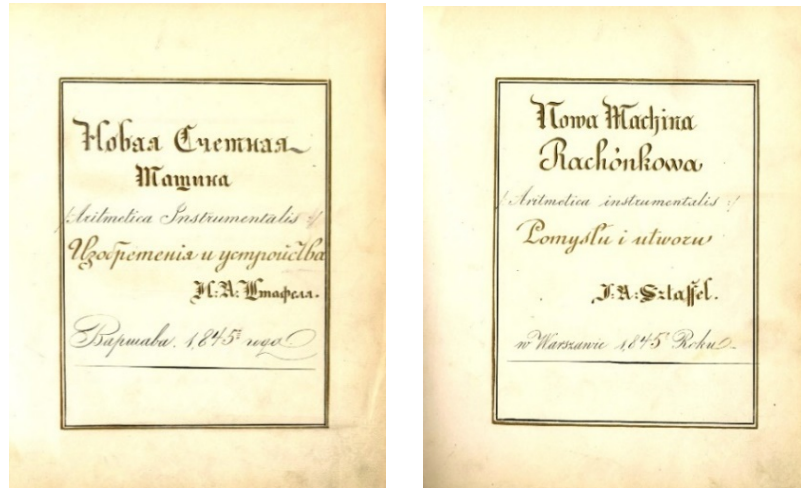 Новая Счетная
Машина
/: Aritmetica Instrumentalis :/
Изобретенія и устройства
И: А: Штафел.
Варшава. 1,845го года
Nowa Machina
Rachónkowa
/: Aritmetica instrumentalis :/
Pomysłu i utworu
J: A: Sztaffel.
w Warszawie 1,845 Roku